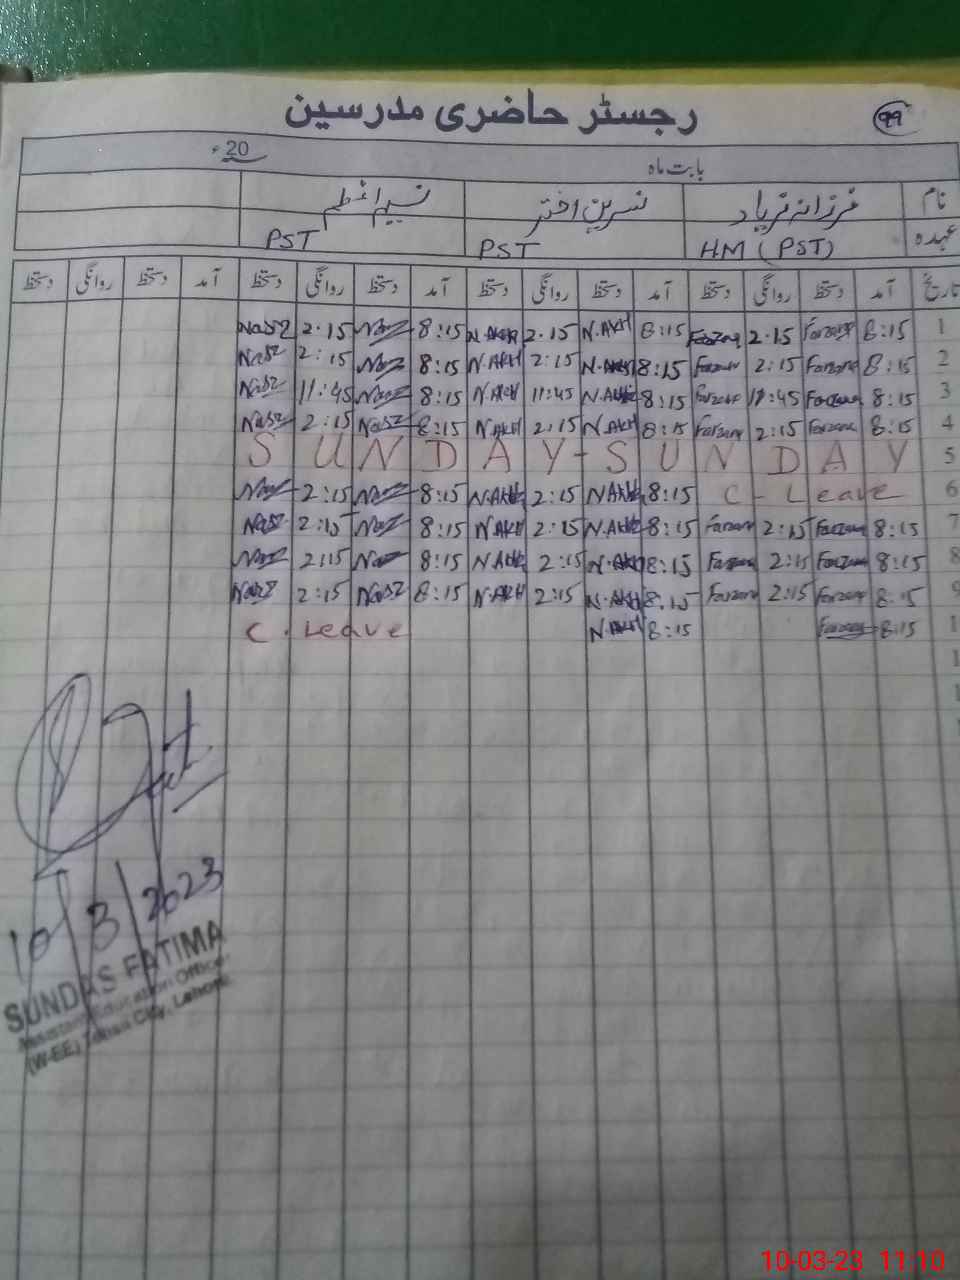 رجسٹر حاضری مدرسین
99
بابت ماہ 20ء
نام فرزانہ فریاد نسرین اختر نسیم اعظم
عہدہ HM (PST) PST PST
تاریخ آمد دستخط روانگی دستخط آمد دستخط روانگی دستخط آمد دستخط روانگی دستخط آمد دستخط روانگی دستخط
1 8:15 Farzana 2.15 Farzana 8:15 N.AKH 2.15 N.AKH 8:15 2.15
2 8:15 Farzana 2:15 Farzana 8:15 N.AKH 2:15 N.AKH 8:15 2:15
3 8:15 Farzana 11:45 Farzana 8:15 N.AKH 11:45 N.AKH 8:15 11:45
4 8:15 Farzana 2:15 Farzana 8:15 N.AKH 2:15 N.AKH 8:15 2:15
5 SUNDAY-SUNDAY
6 C-Leave 8:15 N.AKH 2:15 N.AKH 8:15 2:15
7 8:15 Farzana 2:15 Farzana 8:15 N.AKH 2:15 N.AKH 8:15 2:15
8 8:15 Farzana 2:15 Farzana 8:15 N.AKH 2:15 N.AKH 8:15 2:15
9 8:15 Farzana 2:15 Farzana 8.15 N.AKH 2:15 N.AKH 8:15 2:15
1 8:15 Farzana 8:15 N.AKH C.Leave
1
1
1
10/3/2023
SUNDAS FATIMA
Assistant Education Officer
(W-EE) Tehsil City, Lahore.
10-03-23 11:10